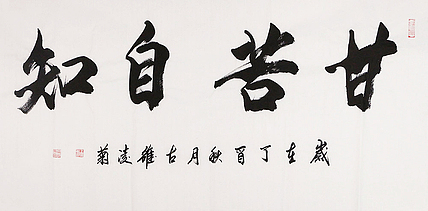 甘苦自知
歲在丁酉秋月古雒凌菊